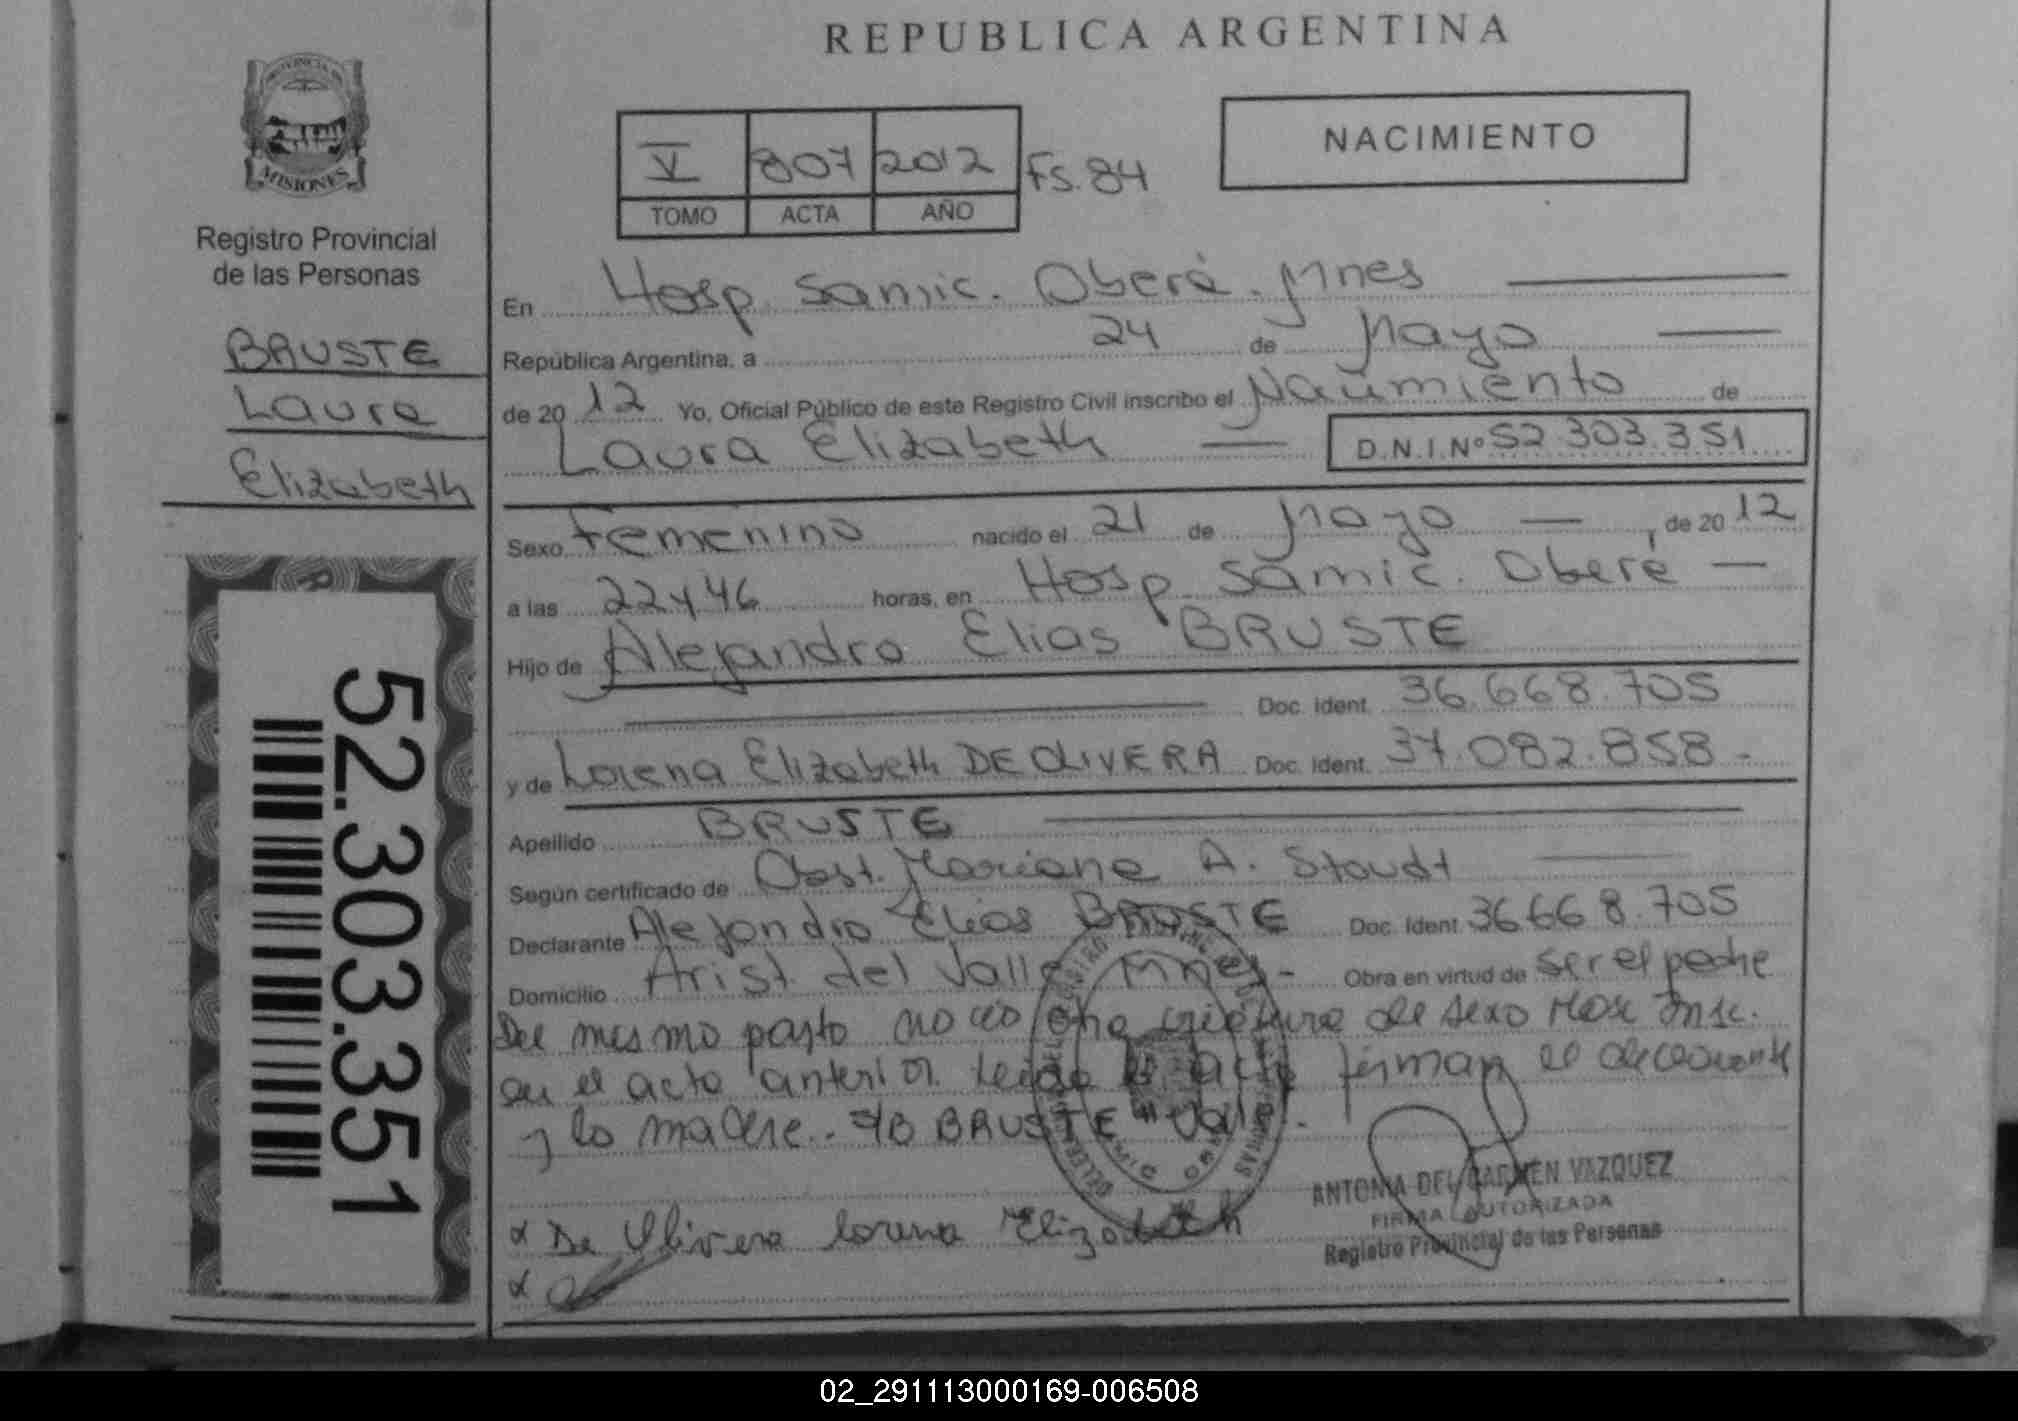 REPUBLICA ARGENTINA
PROVINCIA DE
MISIONES
Registro Provincial
de las Personas
BRUSTE
Laura
Elizabeth
52.303.351
V 807 2012 Fs. 84
TOMO ACTA AÑO
NACIMIENTO
En Hosp. Samic. Oberá. Mnes
República Argentina, a 24 de Mayo
de 20 12 Yo, Oficial Público de este Registro Civil inscribo el Nacimiento de
Laura Elizabeth D.N.I.Nº 52.303.351
Sexo Femenino nacido el 21 de Mayo , de 20 12
a las 22 y 46 horas, en Hosp. Samic. Oberá
Hijo de Alejandro Elias BRUSTE
Doc. Ident. 36.668.705
y de Lorena Elizabeth DE OLIVERA Doc. Ident. 37.082.858 -
Apellido BRUSTE
Según certificado de Obst. Mariana A. Stoudt
Declarante Alejandro Elias BRUSTE Doc. Ident 36668.705
Domicilio Arist. del Valle Mnes - Obra en virtud de ser el padre
Del mismo parto nacio otra criatura de sexo Masc Insc.
en el acta anterior. Leida el acta firman el declarante
y la madre.. S/B BRUSTE "Vale".
x De Olivera Lorena Elizabeth
x
ANTONIA DEL CARMEN VAZQUEZ
FIRMA AUTORIZADA
Registro Provincial de las Personas
02_291113000169-006508